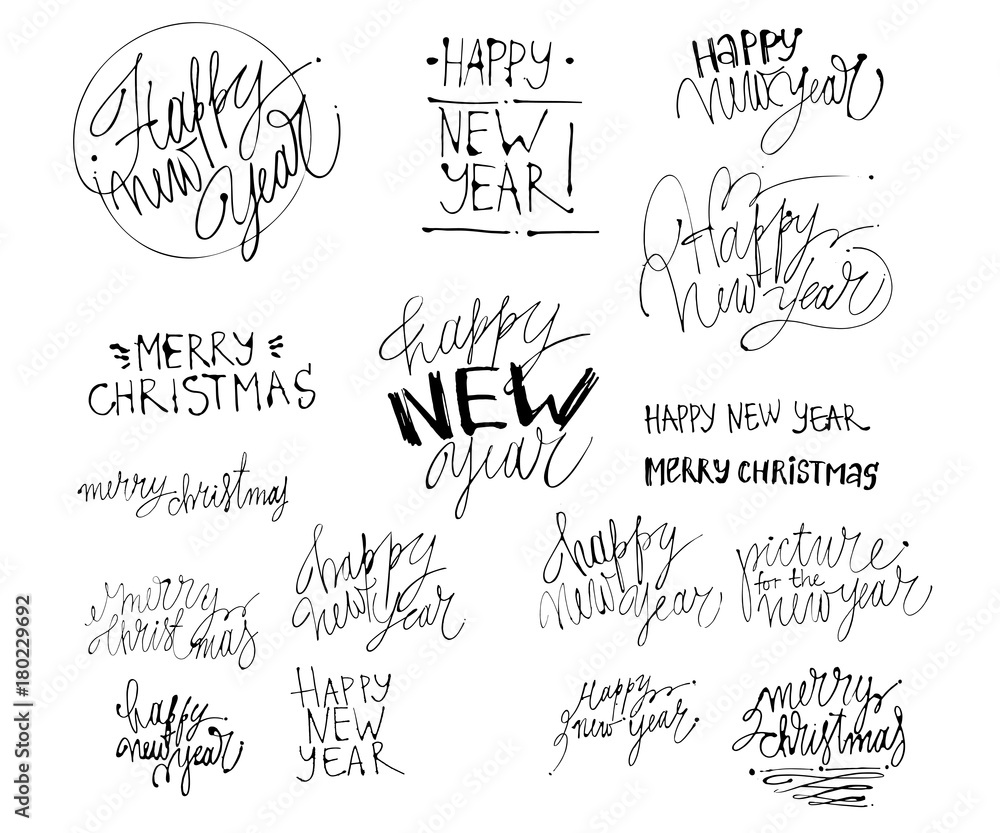 Happy
new
year
·HAPPY·
NEW
YEAR!
Happy
new year
Happy
New year
MERRY
CHRISTMAS
happy
NEW
year
HAPPY NEW YEAR
MERRY CHRISTMAS
merry christmas
merry
christmas
happy
new year
happy
new year
picture
for the
new year
happy
new year
HAPPY
NEW
YEAR
Happy
new year
merry
christmas
Adobe Stock | #180229692